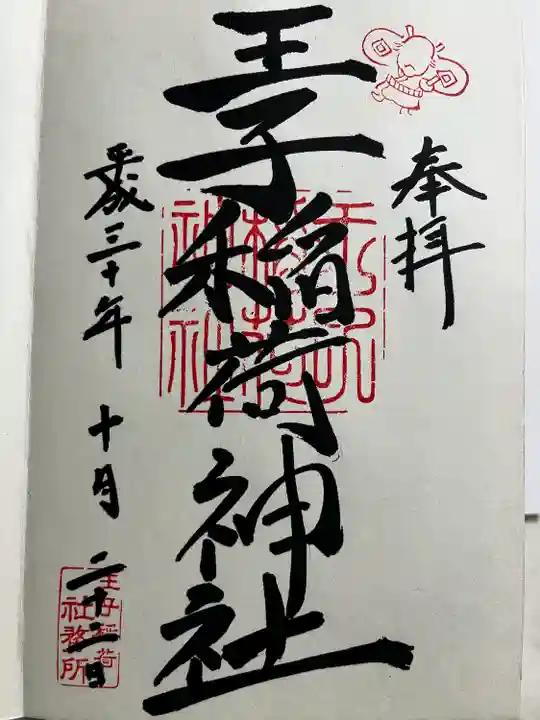 奉拝
王子稲荷神社
平成三十年 十月 二十二日
王子稲荷
社務所